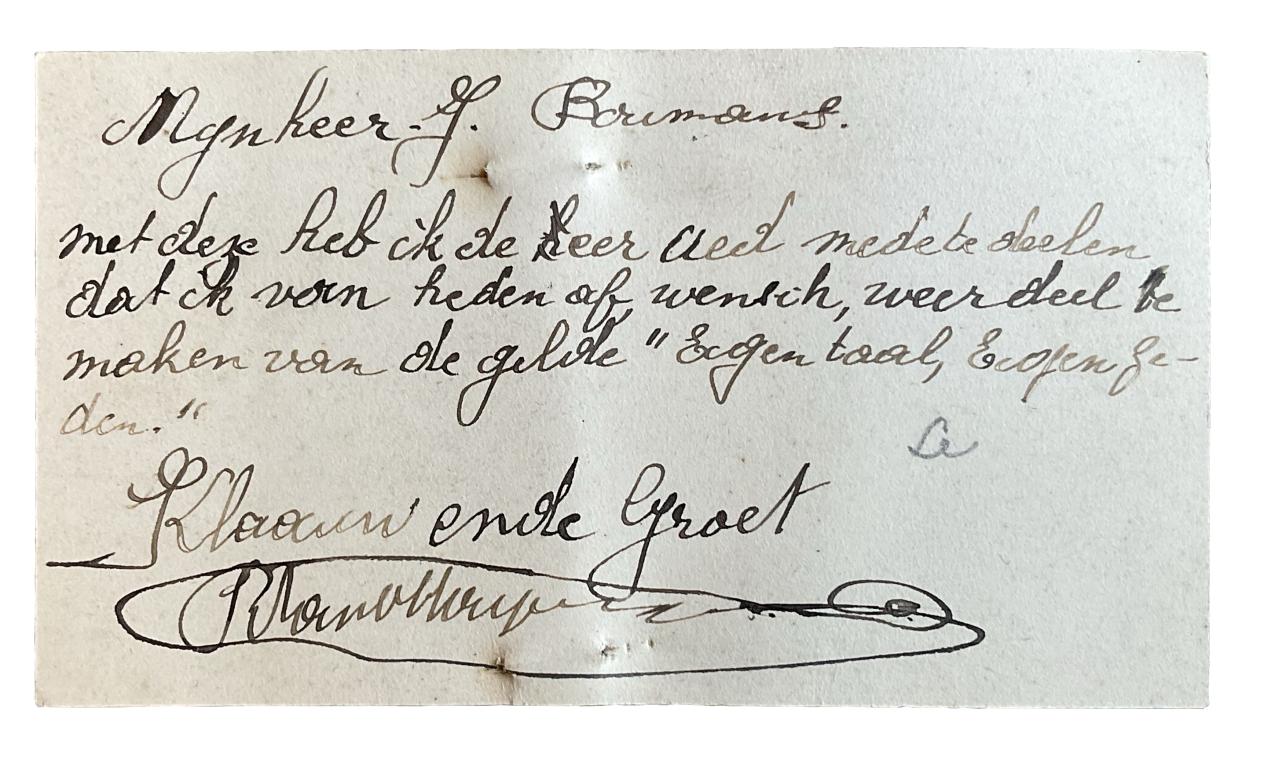 Mynheer J. Boumans.
met deze heb ik de heer Ued mede te deelen
dat ik van heden af, wensch, weer deel te
maken van de gilde "Eigen taal, Eigen ze-
den."
Klaauw ende Groet